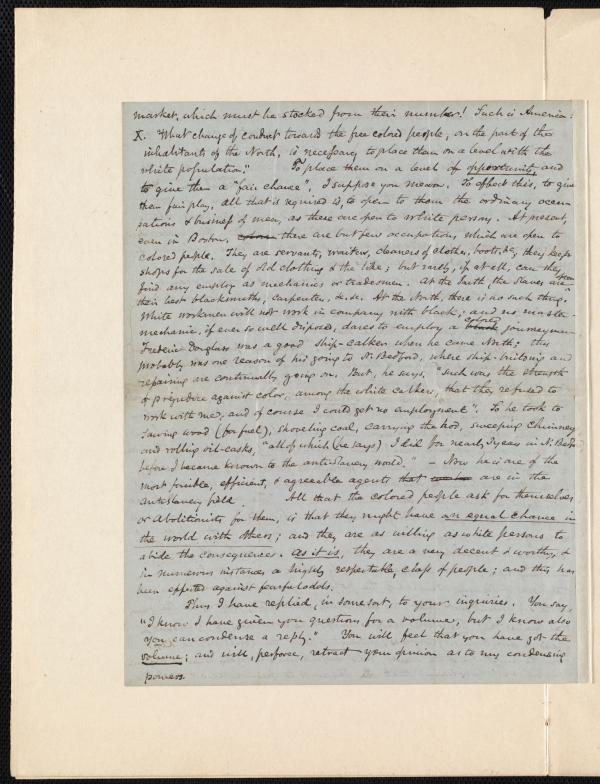 market, which must be stocked from their number! Such is America!
X. "What change of conduct toward the free colored people, on the part of the
inhabitants of the North, is necessary to place them on a level with the
white population." To place them on a level of opportunity, and
to give them a "fair chance", I suppose you mean. To effect this, to give
them fair play, all that is required is, to open to them the ordinary occu-
pations & business of men, as these are open to white persons. At present,
even in Boston, there are but few occupations, which are open to
colored people. They are servants, waiters, cleaners of clothes, boots, &c, they keep
shops for the sale of old clothing & the like; but rarely, if at all, can they
find any employ as mechanics or tradesmen. At the South, the slaves are often
their best blacksmiths, carpenters, &c. &c. At the North, there is no such thing.
White workmen will not work in company with black; and no master-
mechanic, if ever so well disposed, dares to employ a black colored journeyman.
Frederic Douglass was a good ship-calker when he came North; this
probably was one reason of his going to N. Bedford, where ship-building and
repairing are continually going on. But, he says, "such was the strength
of prejudice against color, among the white calkers, that they refused to
work with me, and of course I could get no employment". So he took to
sawing wood (for fuel), shoveling coal, carrying the hod, sweeping chimneys
and rolling oil-casks, "all of which (he says) I did for nearly 3 years in N. Bedford
before I became known to the anti-slavery world." – Now he is one of the
most forcible, efficient, & agreeable agents that are in the
antislavery field. All that the colored people ask for themselves,
or abolitionists for them, is that they might have an equal chance in
the world with others; and they are as willing as white persons to
abide the consequences. As it is, they are a very decent & worthy, &
in numerous instances a highly respectable, class of people; and this has
been effected against fearful odds.
Thus I have replied, in some sort, to your inquiries. You say,
"I know I have given you questions for a volume, but I know also
you can condense a reply." You will feel that you have got the
volume; and will, perforce, retract your opinion as to my condensing
powers.